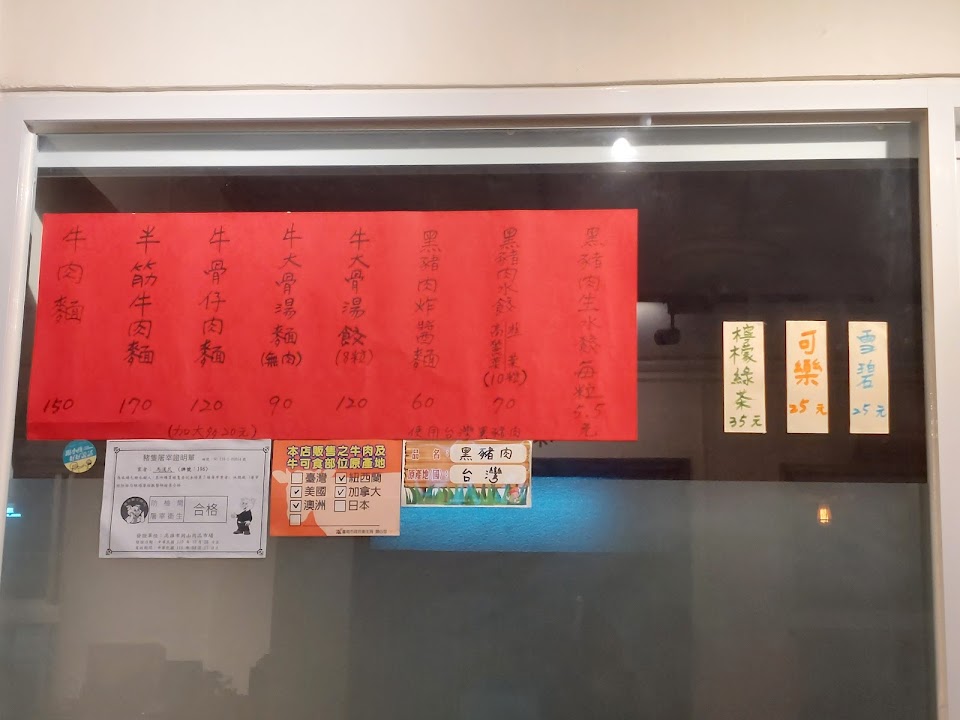 牛肉麵
150
半筋牛肉麵
170
牛骨仔肉麵
120
牛大骨湯麵
(無肉)
90
牛大骨湯餃
(8粒)
120
黑豬肉炸醬麵
60
黑豬肉水餃
韭菜
高麗菜
(10粒)
70
黑豬肉生水餃每粒5.5元
(加大另20元)
使用台灣黑豬肉
檸檬綠茶
35元
可樂
25元
雪碧
25元
豬隻屠宰證明單
防檢局
屠宰衛生
合格
本店販售之牛肉及
牛可食部位原產地
臺灣
紐西蘭
美國
加拿大
澳洲
日本
品名
黑豬肉
原產地(國)
台灣